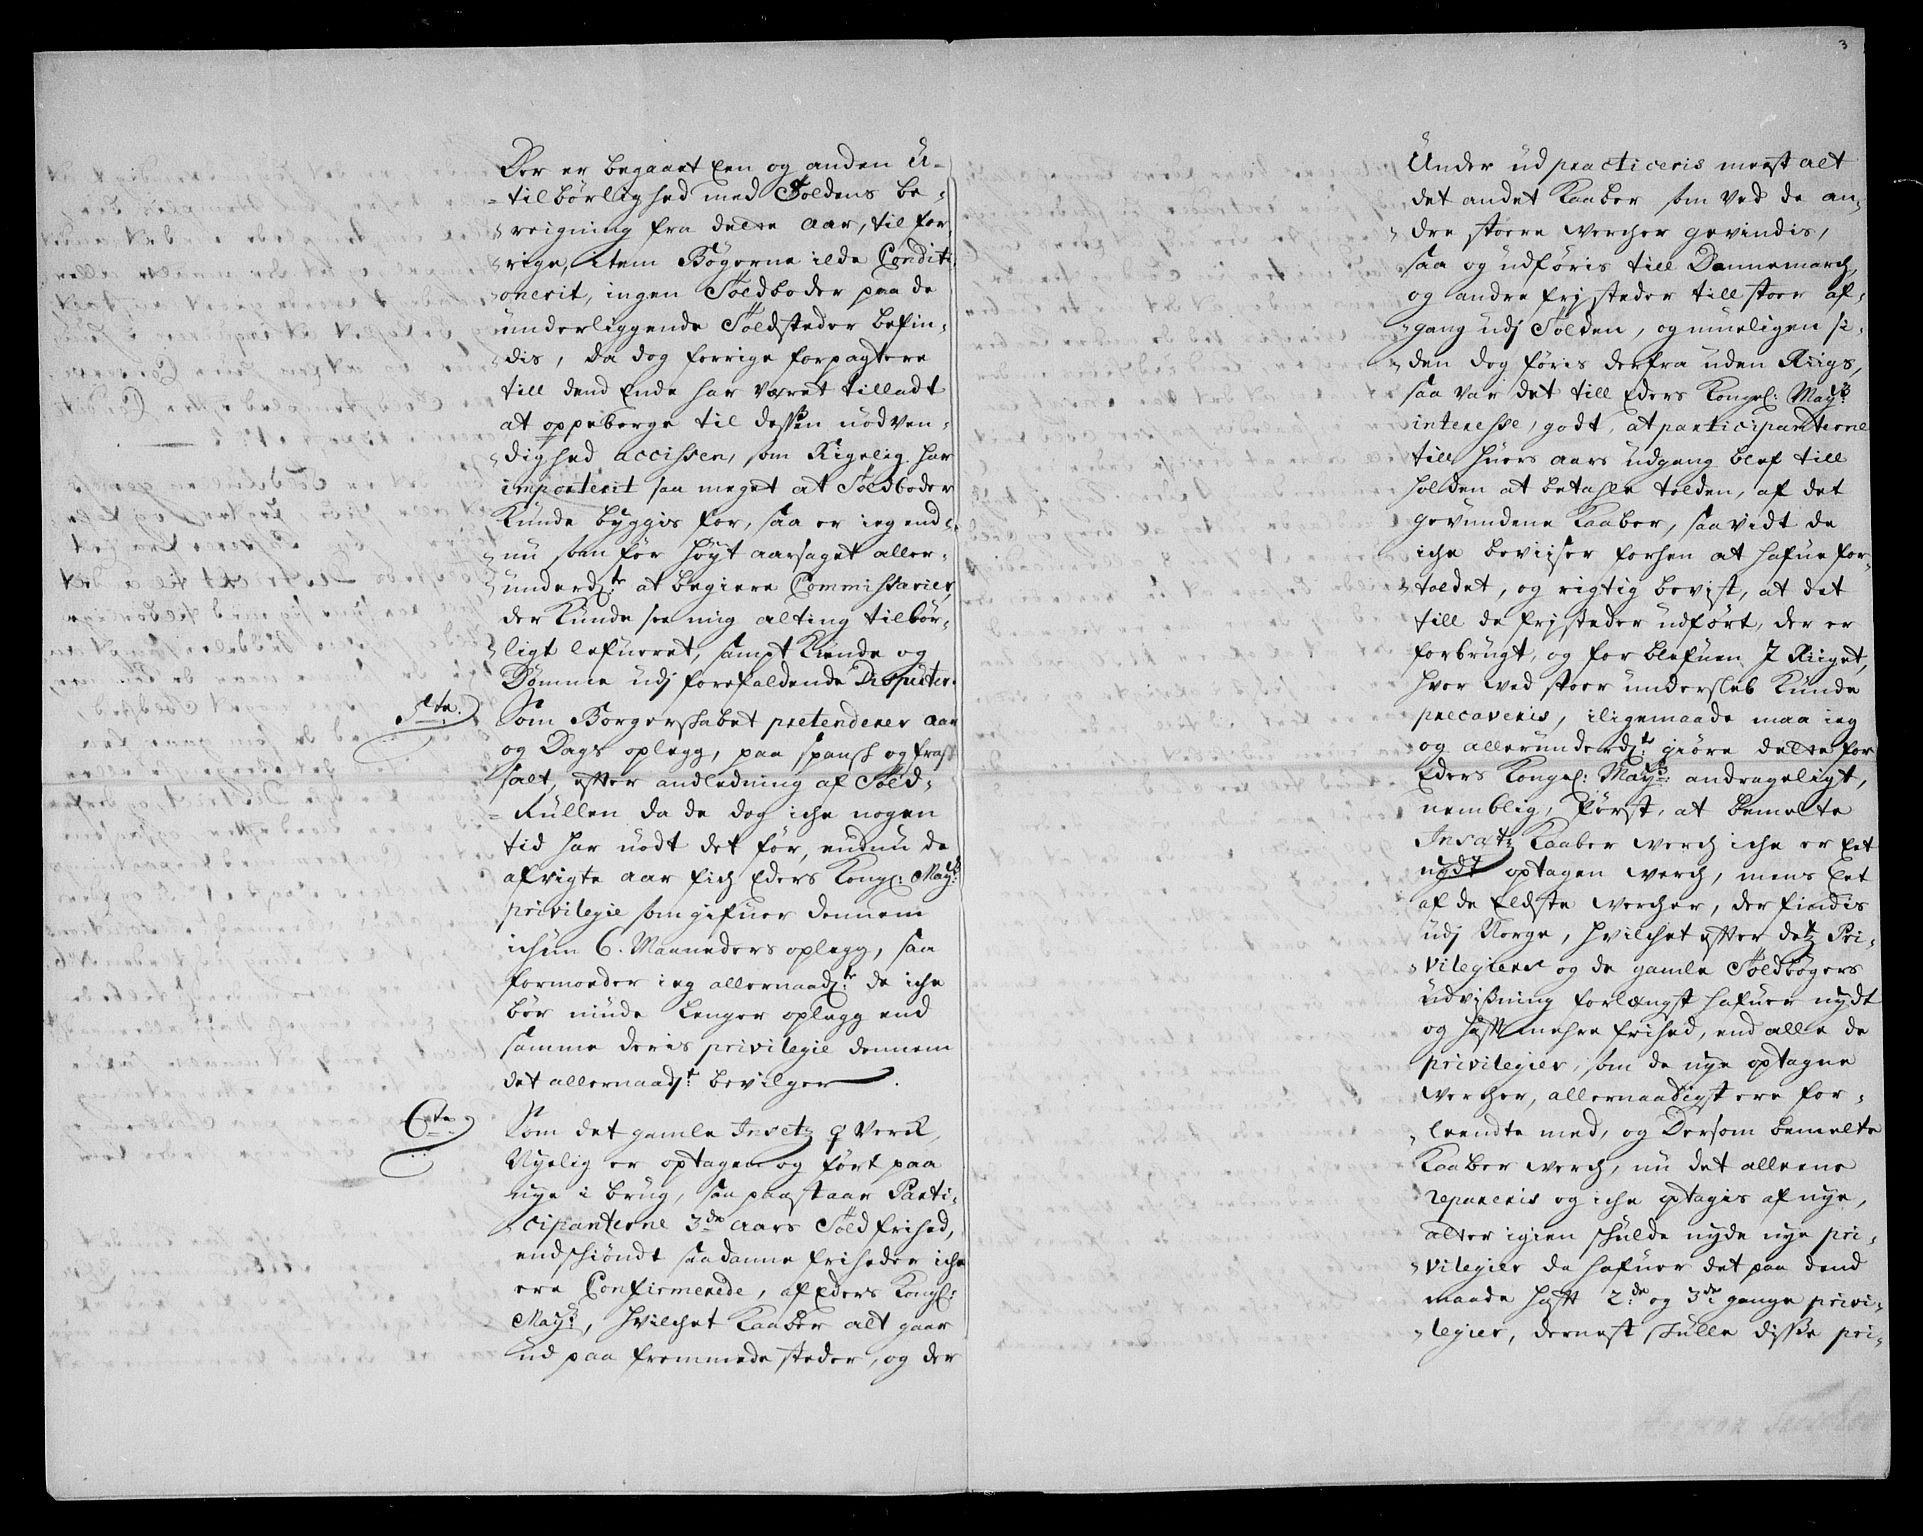 3
Der er begaaet Een og anden U-
tilbørlighed med Toldens be-
reigning fra dette Aar, til for
rige, Item Bøgerne ilde Conditi
onerit, ingen Toldboder paa de
underliggende Toldsteder befin-
dis, da dog forrige forpagtere
till dend Ende har været tilladt
at oppeberge til dessen nødven-
dighed accissen, som Rigelig har
importerit saa meget at Toldboder
Kunde byggis for, saa er ieg end-
nu som før høyt aarsaget aller-
underd:te at begiere Commissarier,
der Kunde see mig alting tilbør-
ligt lefueret, sampt Kiende og
Dømme udj forefaldende Disputer.
5te. Som Borgerskabet pretenderer Aar
og Dags oplegg, paa spansk og fransk
salt, efter andledning af Told-
Rullen da de dog iche nogen
tid har nødt det før, endnu de
afvigte aar fich Eders Kongl: May:ts
privilegie som gifuer dennem
ichun 6. Maaneders oplegg, saa
formoder ieg allernaad:te de iche
bør niude lenger oplegg end
samme deris privilegie dennem
det allernaad:st bevilger.
6te. Som det gamle Insetz ♀ Verck,
Nyelig er optagen og ført paa
nye i brug, saa paastaar Parti-
cipanterne 3de aars Told frihed,
endschiøndt saadanne friheder iche
ere Confirmerede, af Eders Kongl:
May:ts, hvilchet Kaaber alt gaar
ud paa fremmede steder, og der
Under ud practiceris meest alt
det andet Kaaber som ved de an-
dre stoere vercher gevindis,
saa og udføris till Dannemarch,
og andre frj steder till stoer af-
gang udj Tolden, og mueligen si-
den dog føris derfra uden Riigs,
saa var det till Eders Kongel: May:ts
interesse, godt, at participanterne
till huers aars udgang blef till
holden at betahle tolden, af det
gevundene Kaaber, saavidt de
iche beviiser forhen at hafue for-
toldet, og rigtig bevist, at det
till de frj steder udført, der er
forbrugt, og for blefuen J Riiget,
hvor ved stoer undersleb Kunde
precaveris, iligemaade maa ieg
og allerunderd:te giøre dette for
Eders Kongel: May:ts andrageligt,
nemblig, først, at bemelte
Insatz Kaaber verch iche er Eet
nydt optagen verch, mens Eet
af de Eldste vercher, der findis
udj Norge, hvilchet efter detz Pri-
vilegier og de gamle Toldbøgers
udvißning forlængst hafuer nydt
og hafft mehre frihed, end alle de
privilegier, som de nye optagne
vercher, allernaadigst ere for-
leendte med, og Dersom bemelte
Kaaber verch, nu det alleene
repareris og iche optagis af nye,
atter igien skulde nyde nye pri-
vilegier da hafuer det paa dend
maade hafft 2de og 3de gange privi-
legier, dernest skulle disse pri-